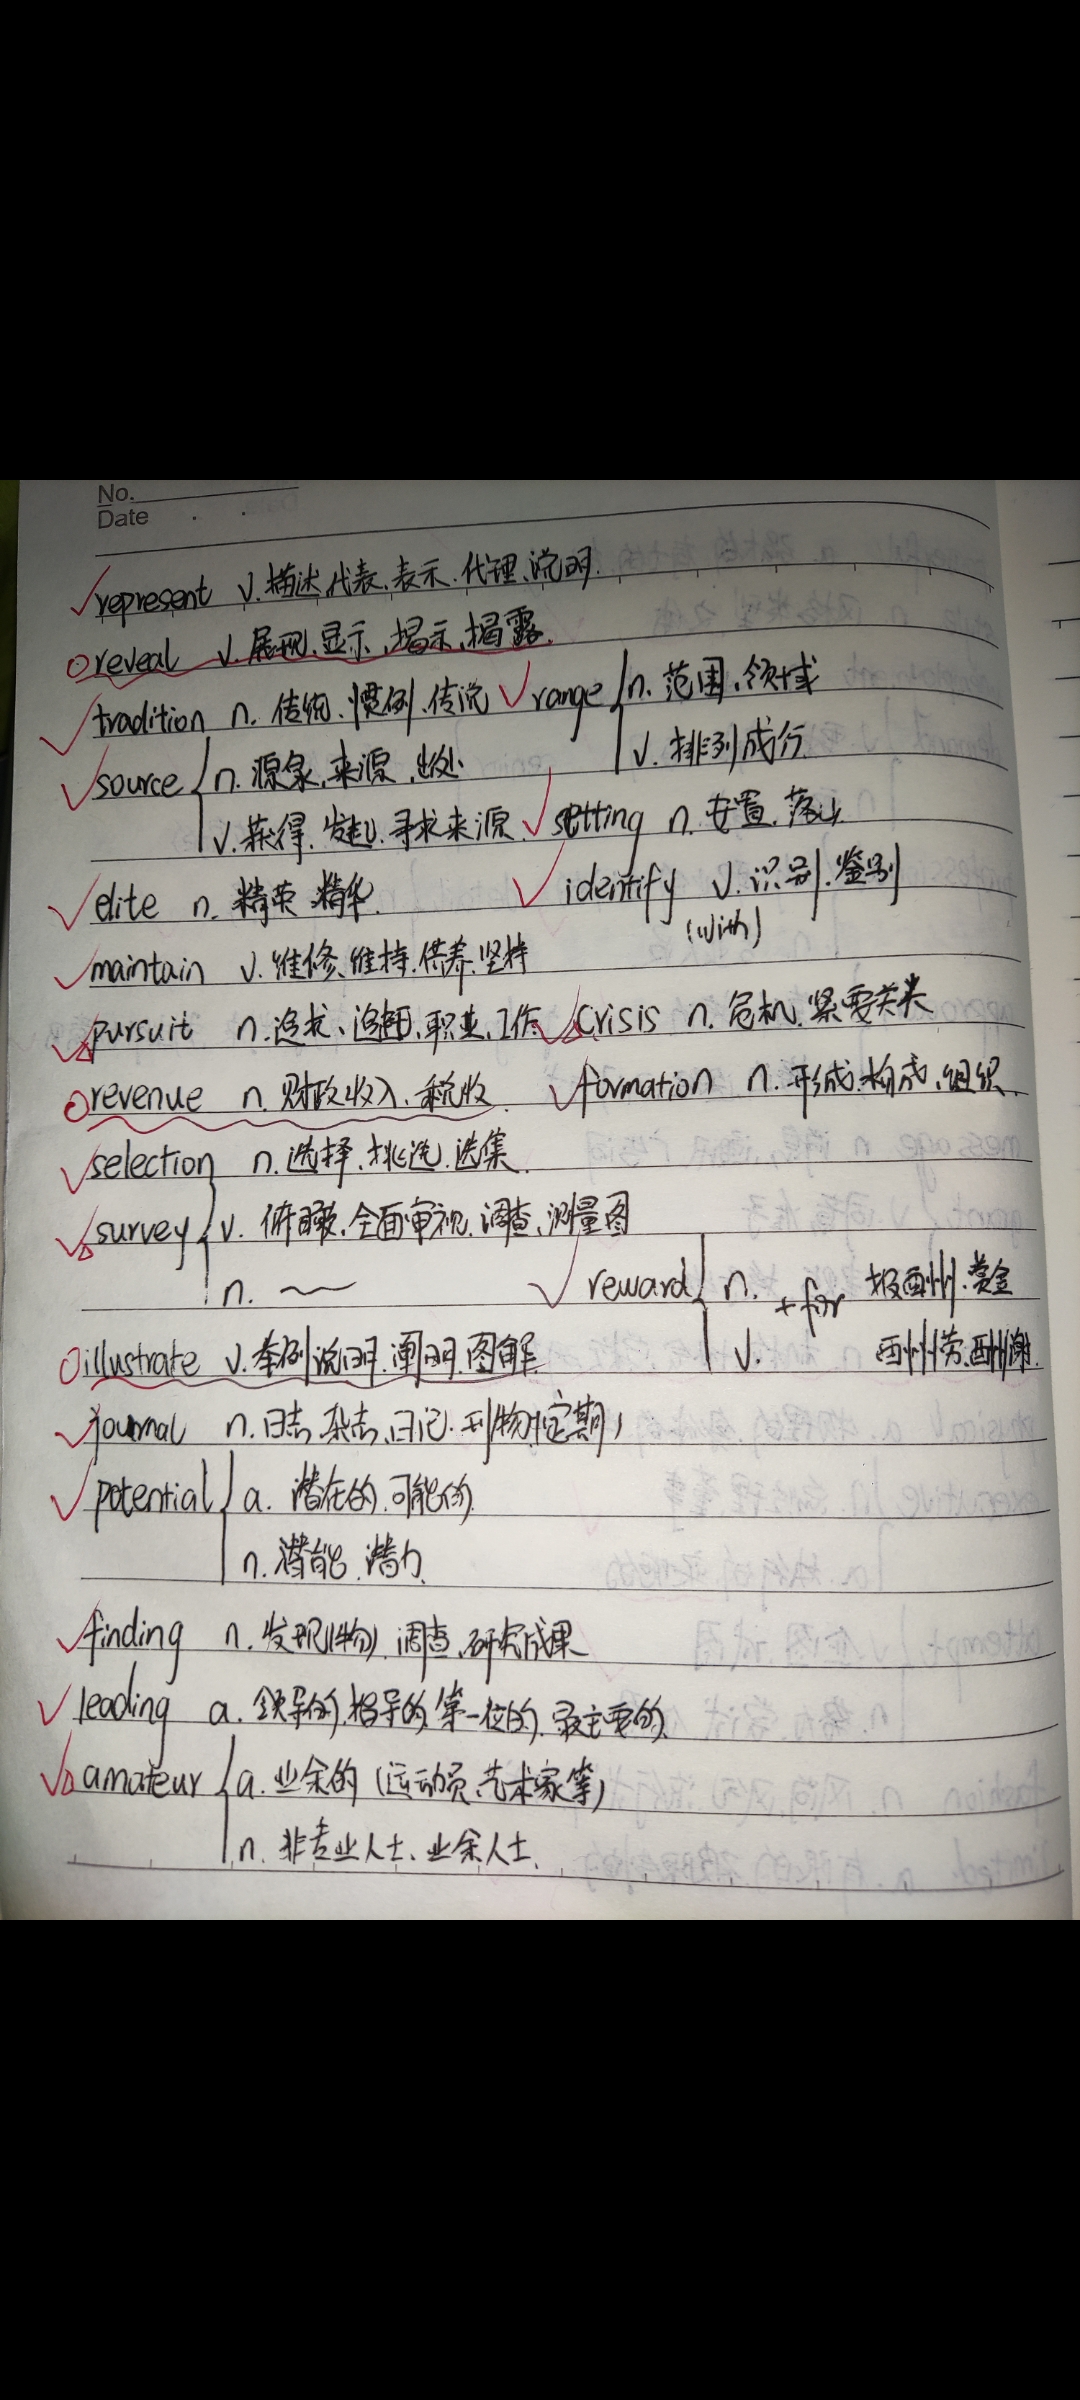 No.
Date
represent v. 描述.代表.表示.代理.说明.
reveal v. 展现.显示.揭示.揭露.
tradition n. 传统、惯例.传说 range n. 范围.领域
v. 排列成行.
source n. 源泉.来源.出处.
v. 获得.发起.寻求来源 setting n. 安置.落山
elite n. 精英.精华. identify v. 识别.鉴别
(with)
maintain v. 维修、维持.供养.坚持
pursuit n. 追求、追赶.职业.工作 crisis n. 危机.紧要关头
revenue n. 财政收入、税收. formation n. 形成.构成.组织.
selection n. 选择.挑选.选集.
survey v. 俯瞰.全面审视.调查.测量图
n. ～ reward n. +for 报酬.赏金
v. 酬劳.酬谢.
illustrate v. 举例说明.阐明.图解.
journal n. 日志.杂志.日记.刊物(定期)
potential a. 潜在的.可能的.
n. 潜能.潜力.
finding n. 发现(物).调查.研究成果
leading a. 领导的.指导的.第一位的.最主要的.
amateur a. 业余的(运动员.艺术家等)
n. 非专业人士、业余人士.